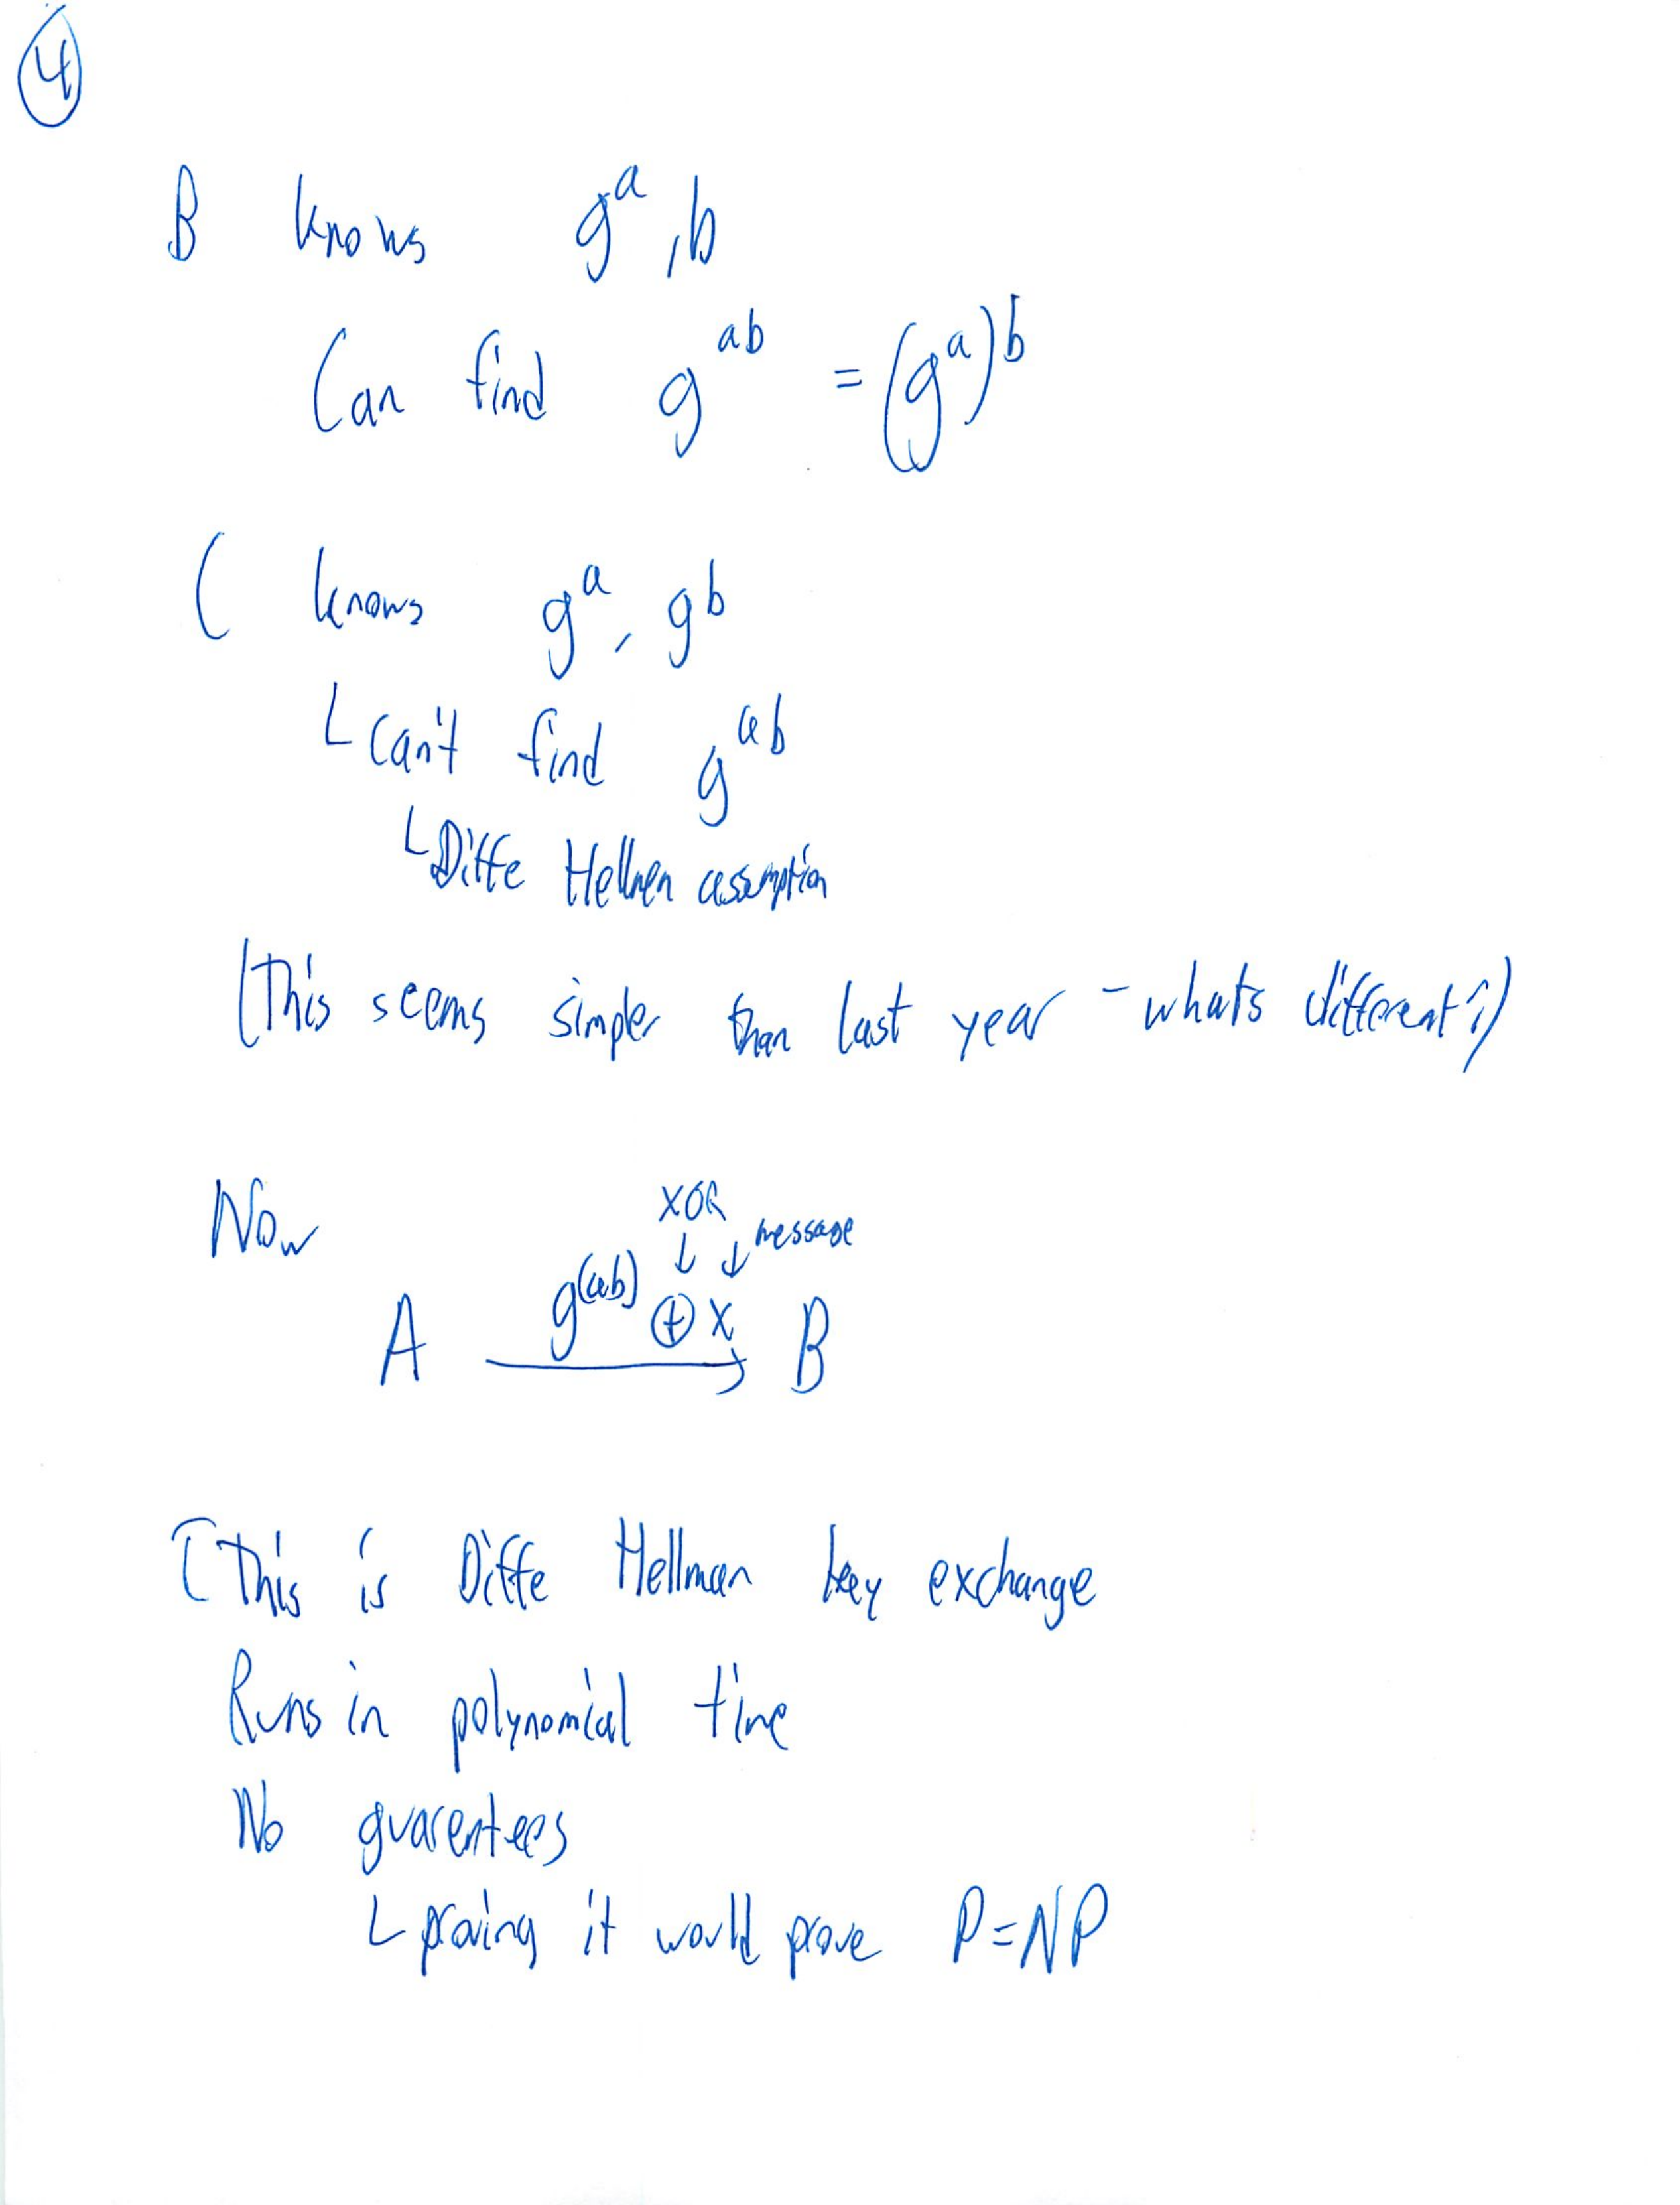 4
B knows g^a, b
Can find g^ab = (g^a)^b
C knows g^a, g^b
can't find g^ab
Diffe Hellmen assumption
(This seems simpler than last year - whats different?)
Now
XOR
message
A g^(ab) ⊕ x B
This is Diffe Hellman key exchange
Runs in polynomial time
No guarentees
proving it would prove P=NP